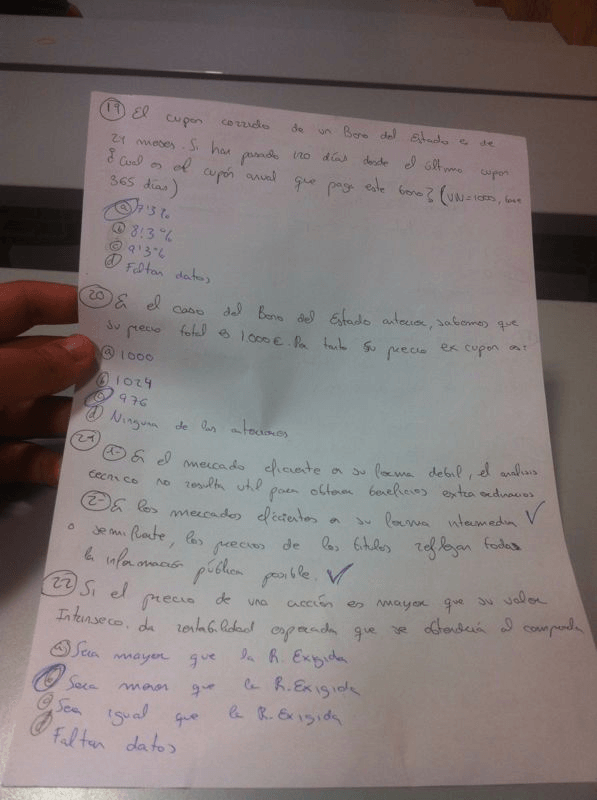 19 El cupon corrido de un Bono del Estado es de
24 meses. Si han pasado 120 días desde el último cupon
¿Cual es el cupón anual que paga este bono? (VN=1000, base
365 días)
a 7'3%
b 8'3%
c 9'3%
d Faltan datos
20 En el caso del Bono del Estado anterior, sabemos que
su precio total es 1.000€. Por tanto su precio ex cupon es:
a 1000
b 1024
c 976
d Ninguna de las anteriores
21 1- En el mercado eficiente en su forma debil, el análisis
tecnico no resulta util para obtener beneficios extraordinarios
2- En los mercados eficientes en su forma intermedia
o semifuerte, los precios de los titulos reflejan toda
la información pública posible.
22 Si el precio de una acción es mayor que su valor
Intrinseco. La rentabilidad esperada que se obtendría al comprarla
a) Sera mayor que la R. Exigida
b Sera menor que la R. Exigida
c Sera igual que la R. Exigida
d Faltan datos